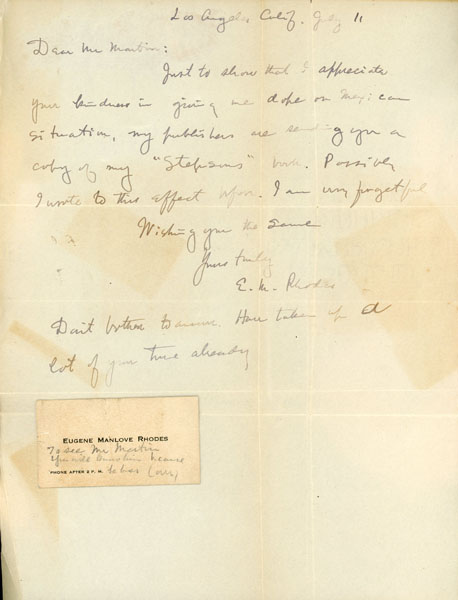 Los Angeles, Calif. July 11
Dear Mr Martin:
Just to show that I appreciate
your kindness in giving me dope on Mexican
situation, my publishers are sending you a
copy of my "Stepsons" book. Possibly
I wrote to this effect before. I am very forgetful
Wishing you the same
Yours truly
E. M. Rhodes
Don't bother to answer. Have taken up a
lot of your time already
EUGENE MANLOVE RHODES
To see Mr Martin
You will
PHONE AFTER 2 P. M. (over)